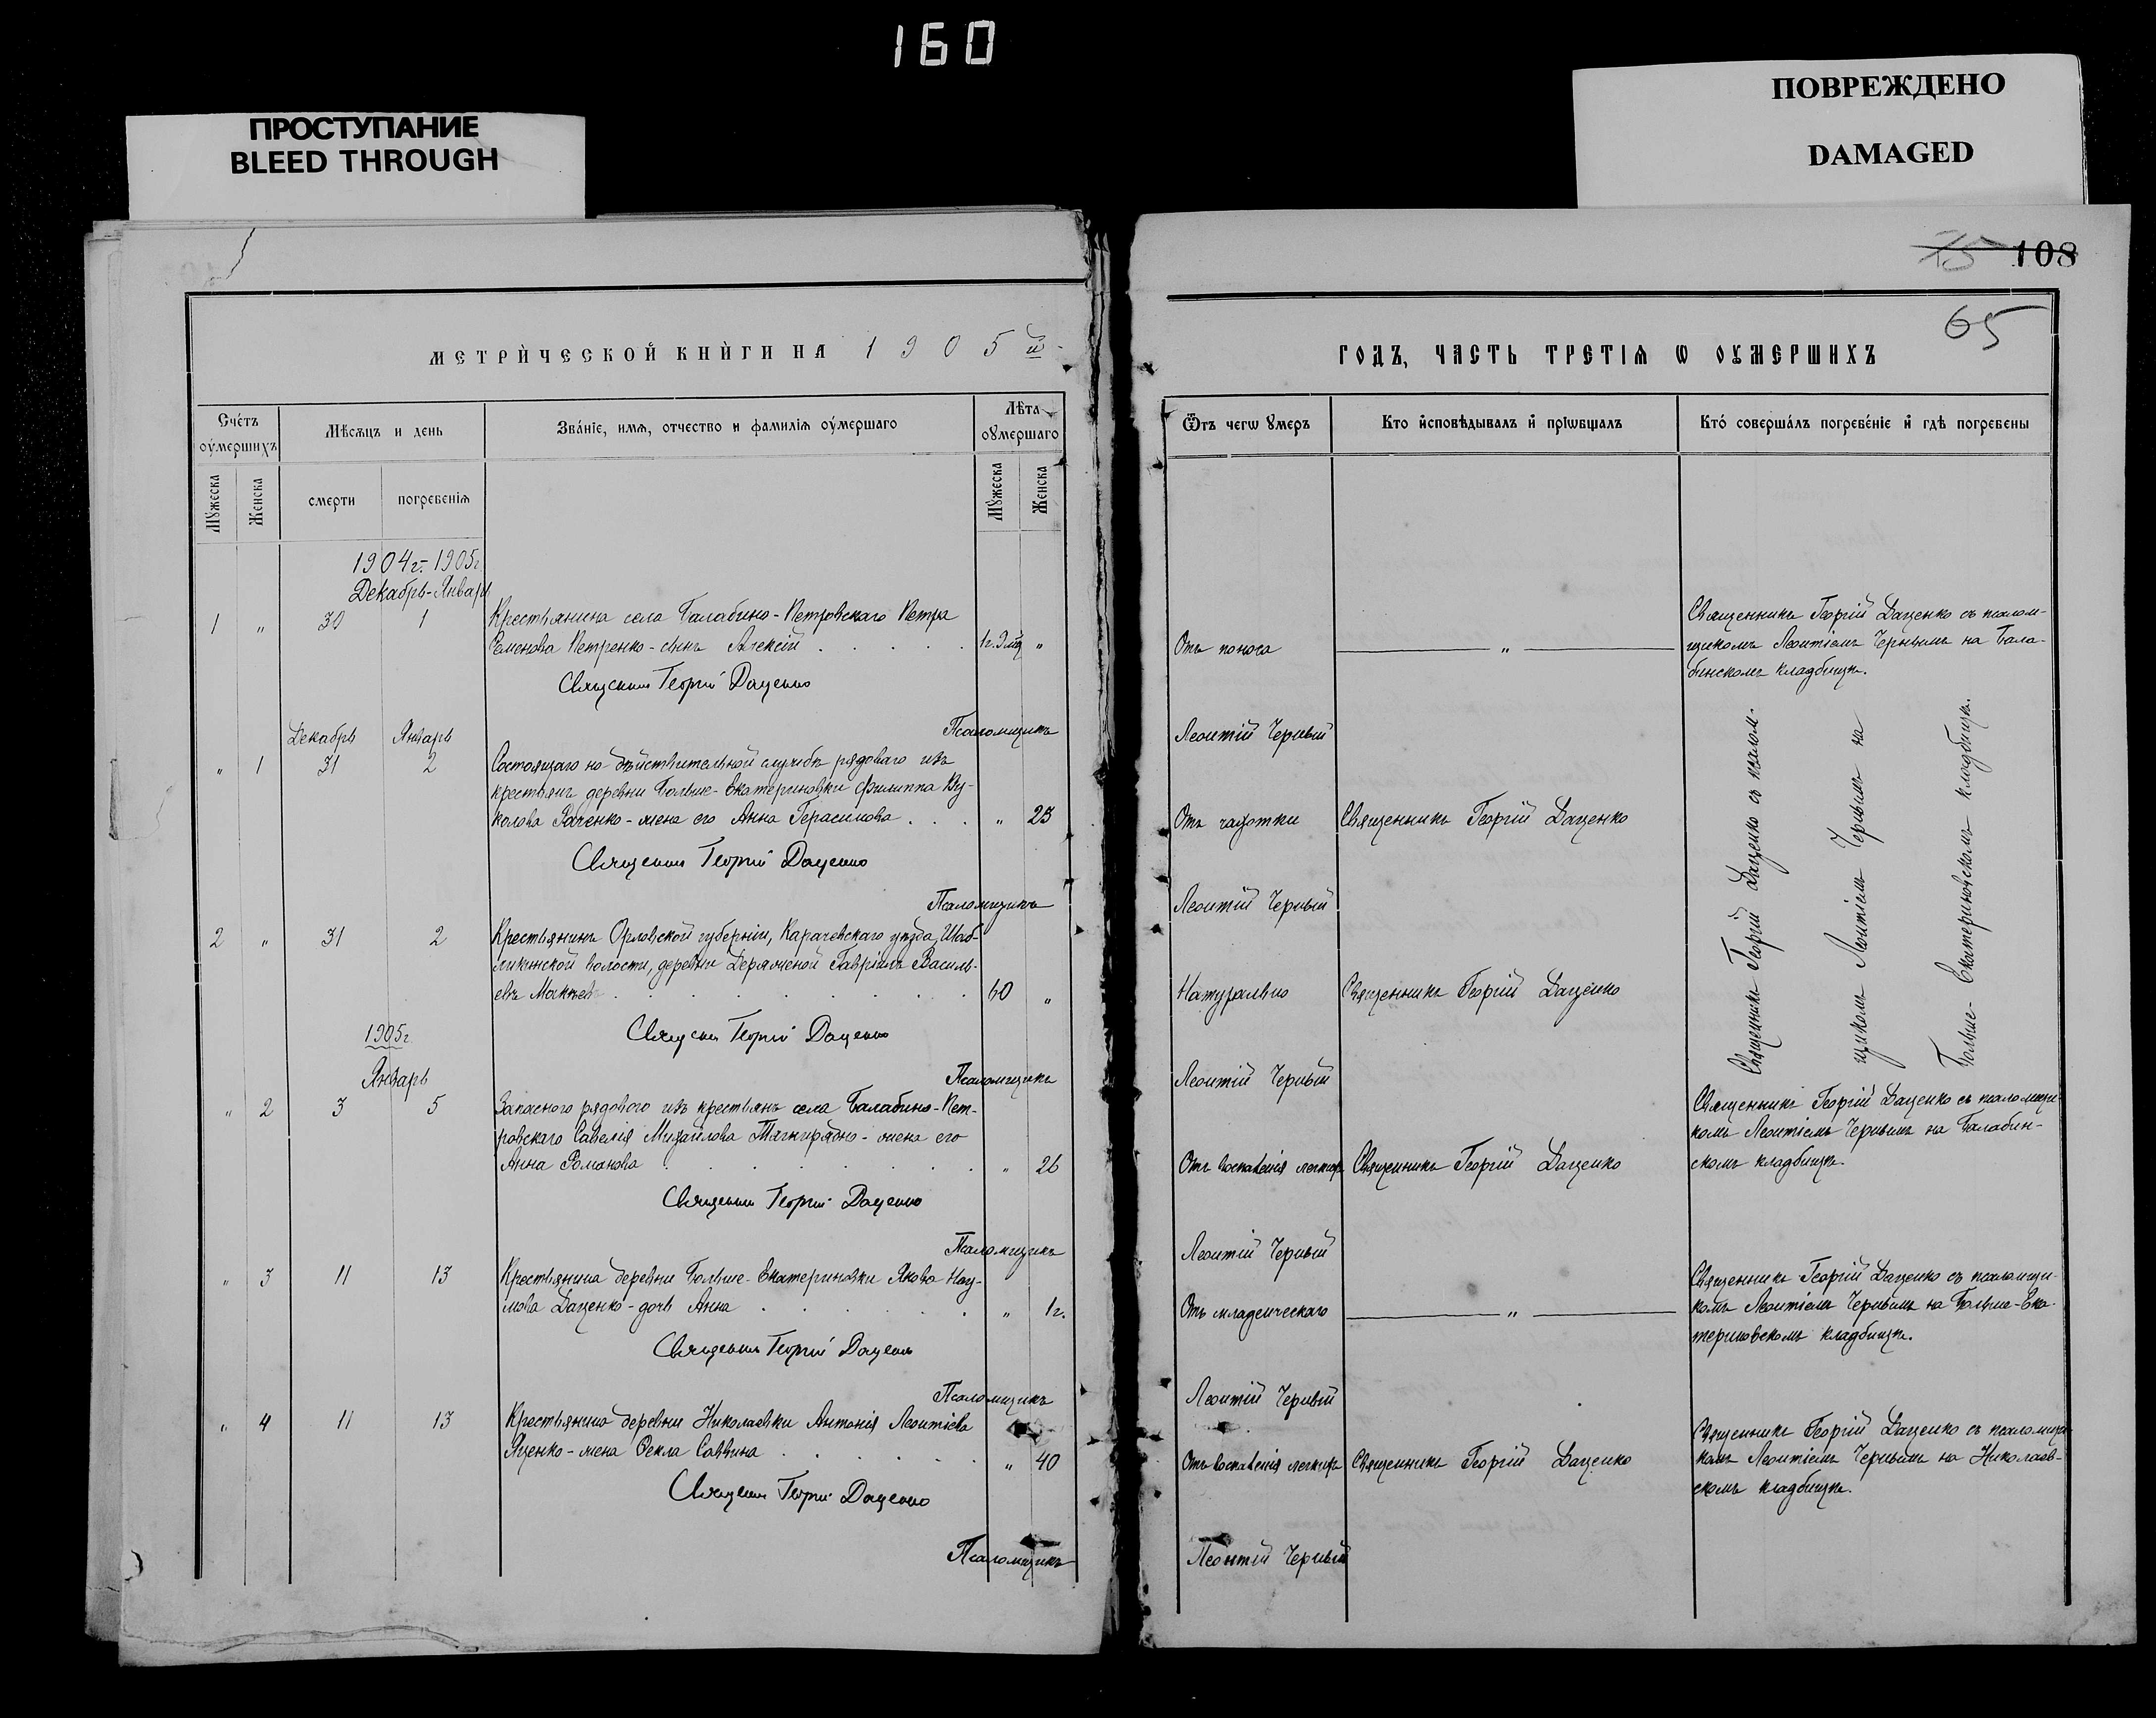 160
ПРОСТУПАНИЕ
BLEED THROUGH
ПОВРЕЖДЕНО
DAMAGED
75 108
65
МЕТРИЧЕСКОЙ КНИГИ НА 1905й
ГОДЪ, ЧАСТЬ ТРЕТІѦ Ѡ ОУМЕРШИХЪ
Счетъ оумершихъ
Мѣсяцъ и день
Званіе, имѧ, отчество и фамиліѧ оумершаго
Лѣта оумершаго
Ѿтъ чегѡ умеръ
Кто исповѣдывалъ и пріѡбщалъ
Кто совершалъ погребеніе и гдѣ погребены
Мужеска
Женска
смерти
погребеніѧ
Мужеска
Женска
1904г.-1905г
Декабрь-Январь
1 „ 30 1 Крестьянина села Балабино-Петровскаго Петра
Семенова Петренко-сынъ Алексій . . . . . 1г. „
Отъ поноса
„
Священникъ Георгій Даценко съ псалом-
щикомъ Леонтіемъ Чернымъ на Бала-
бинскомъ кладбищѣ.
Священникъ Георгій Даценко
Псаломщикъ Леонтій Черный
Декабрь Январь
„ 1 31 2 Состоящаго на дѣйствительной службѣ рядоваго изъ
крестьянъ деревни Больше-Екатериновки Филиппа Ву-
колова -жена его Анна Герасимова . . . „ 23
Отъ чахотки
Священникъ Георгій Даценко
Священникъ Георгій Даценко съ псалом-
щикомъ Леонтіемъ Чернымъ на
Больше-Екатериновскомъ кладбищѣ.
Священникъ Георгій Даценко
Псаломщикъ Леонтій Черный
2 „ 31 2 Крестьянинъ Орловской губерніи, Карачевскаго уѣзда, Шаб-
лыкинской волости, деревни Гавріилъ Василь-
евъ . . . . . . . 60 „
Натурально
Священникъ Георгій Даценко
Священникъ Георгій Даценко
Псаломщикъ Леонтій Черный
1905г.
Январь
„ 2 3 5 Запасного рядового изъ крестьянъ села Балабино-Пет-
ровскаго Савелія Михайлова Тягнирядно-жена его
Анна Романова . . . . . . . „ 26
Отъ воспаленія легкихъ
Священникъ Георгій Даценко
Священникъ Георгій Даценко съ псаломщи-
комъ Леонтіемъ Чернымъ на Балабин-
скомъ кладбищѣ.
Священникъ Георгій Даценко
Псаломщикъ Леонтій Черный
„ 3 11 13 Крестьянина деревни Больше-Екатериновки Якова Нау-
мова Даценко-дочь Анна . . . . . . „ 1г.
Отъ младенческаго
„
Священникъ Георгій Даценко съ псаломщи-
комъ Леонтіемъ Чернымъ на Больше-Ека-
териновскомъ кладбищѣ.
Священникъ Георгій Даценко
Псаломщикъ Леонтій Черный
„ 4 11 13 Крестьянина деревни Николаевки Антонія Леонтіева
Яценко-жена Ѳекла Саввина . . . . . . „ 40
Отъ воспаленія легкихъ
Священникъ Георгій Даценко
Священникъ Георгій Даценко съ псаломщи-
комъ Леонтіемъ Чернымъ на Николаев-
скомъ кладбищѣ.
Священникъ Георгій Даценко
Псаломщикъ Леонтій Черный